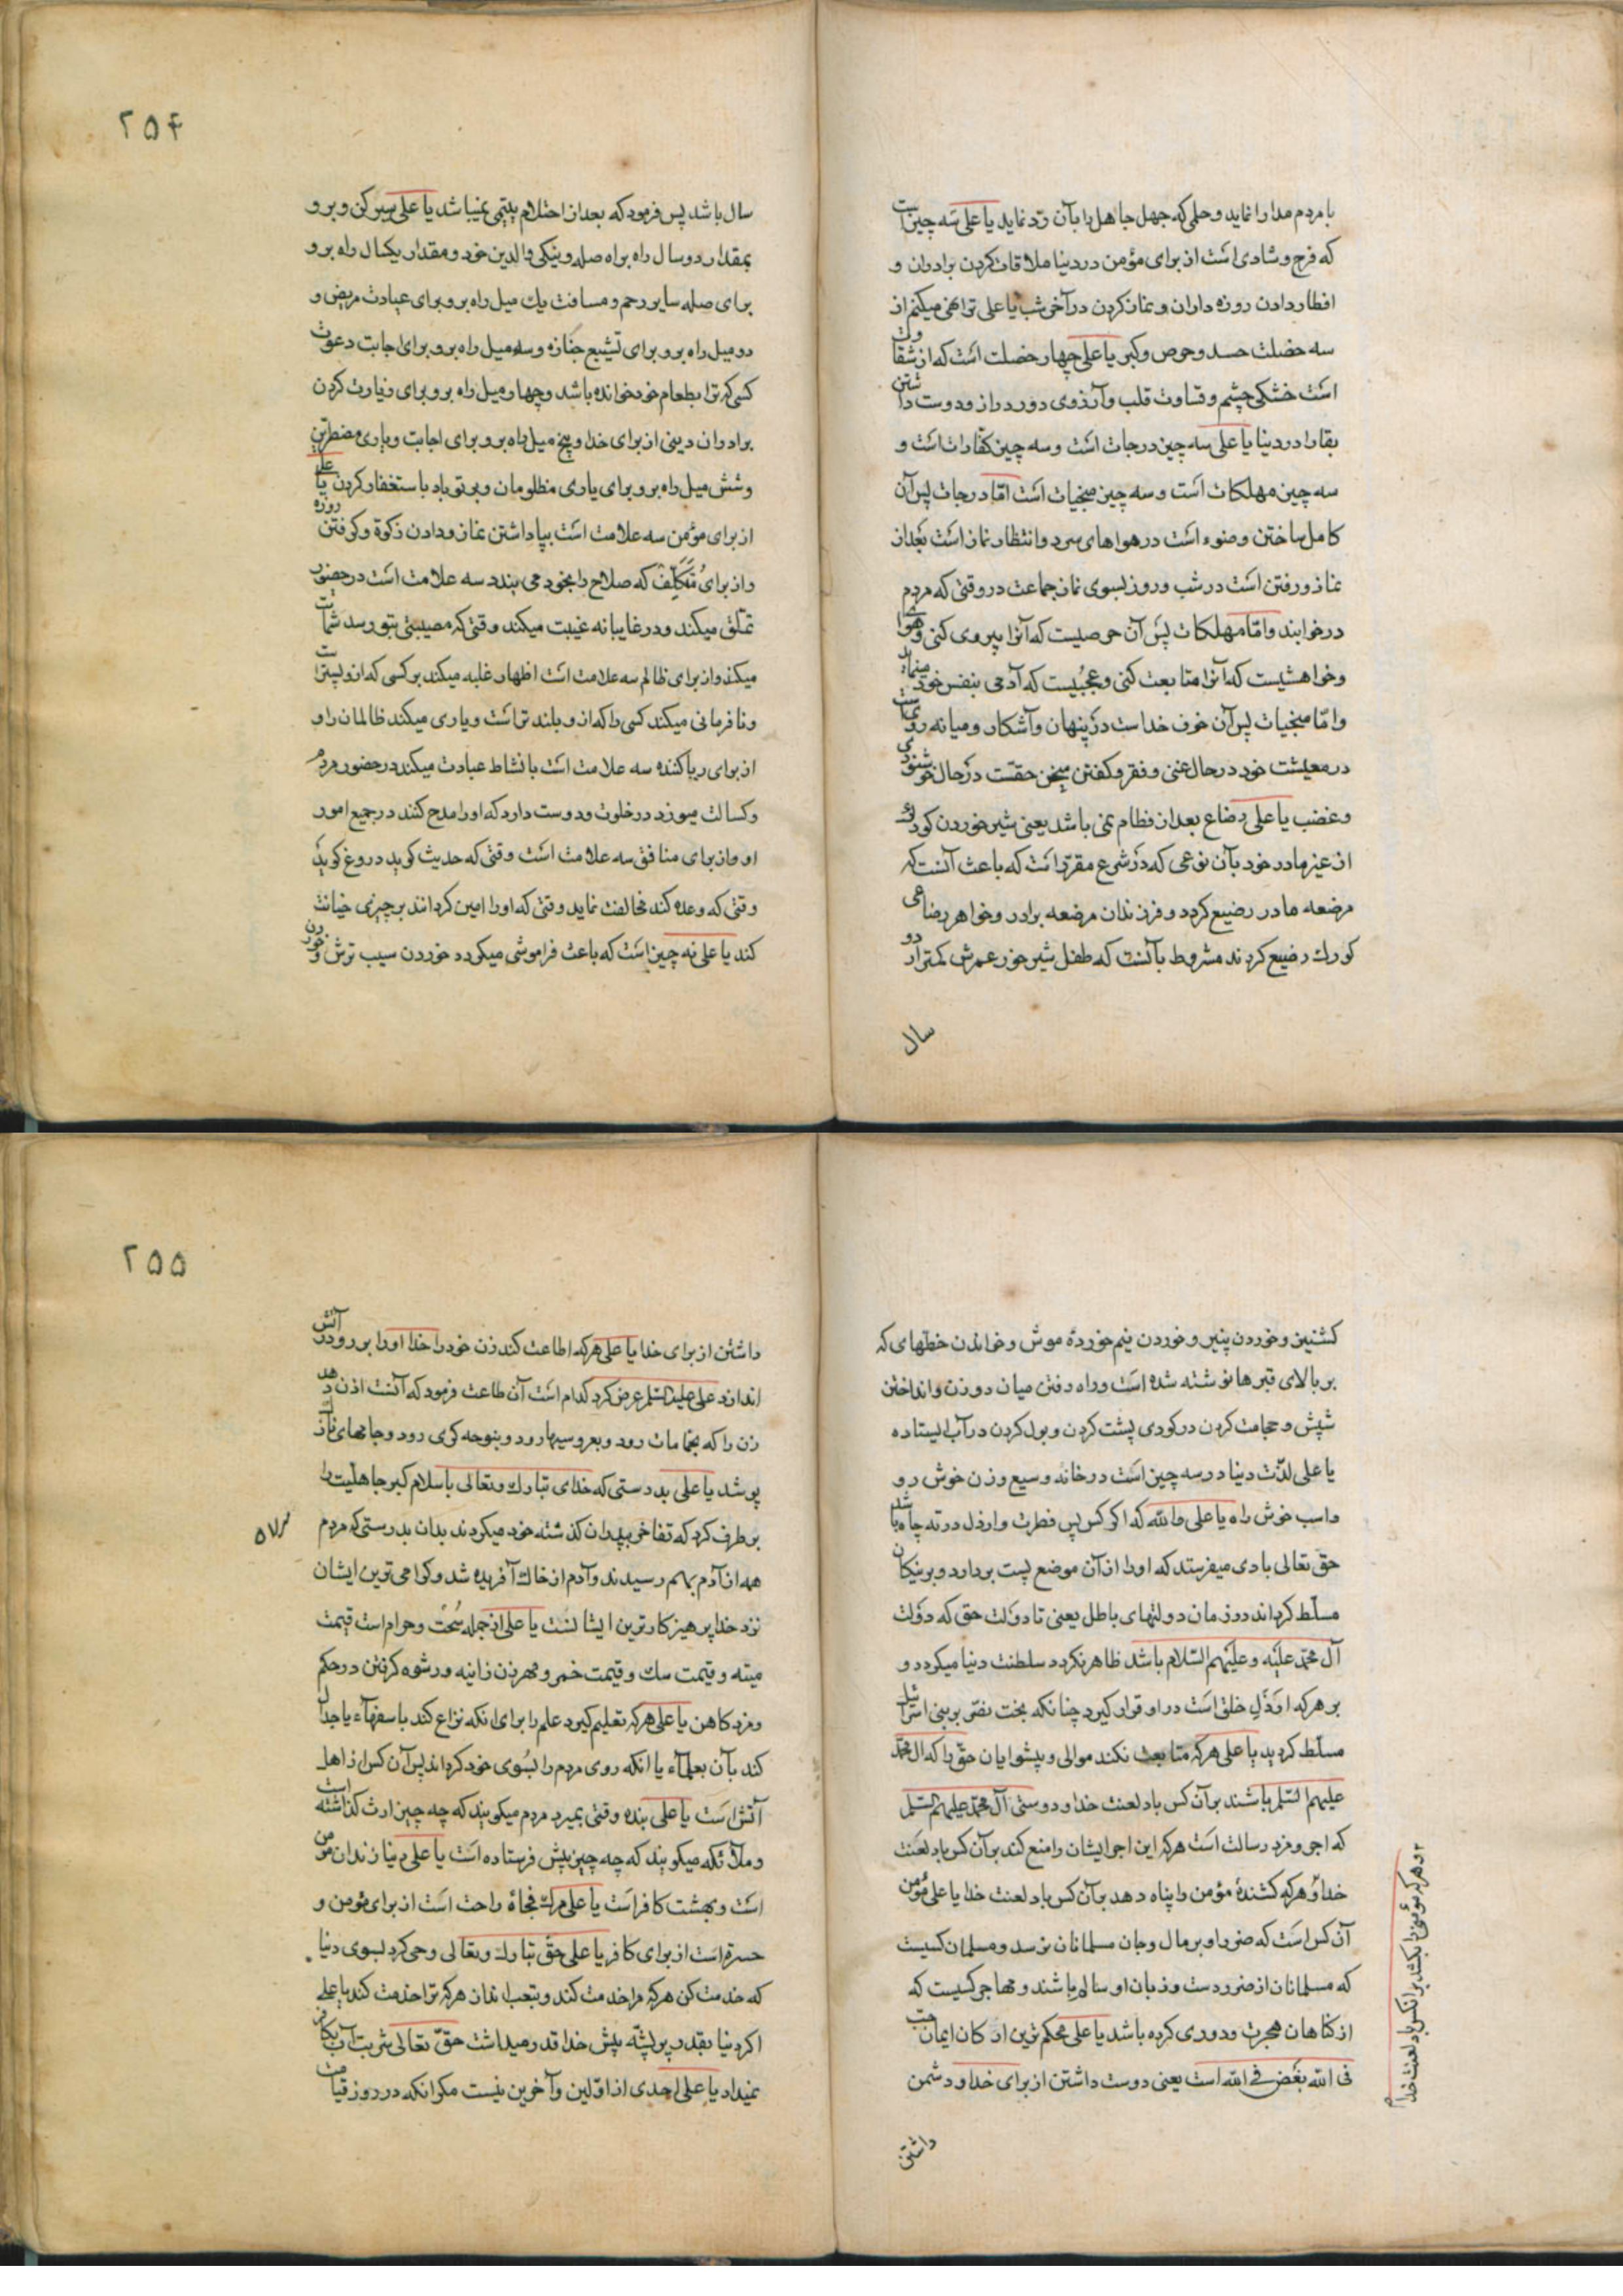 با مردم مدارا نماید و حلمی که جهل جاهل را بآن رد نماید یا علی سه چیز است
که فرح و شادی است از برای مؤمن در دنیا ملاقات کردن برادران و
افطار دادن روزه داران و نماز کردن در آخر شب یا علی ترا نهی میکنم از
سه خصلت حسد و حرص و کبر یا علی چهار خصلت است که از شقاوت
است خشکی چشم و قساوت قلب و آرزوی دور دراز و دوست داشتن
بقا را در دنیا یا علی سه چیز درجات است و سه چیز کفارات است و
سه چیز مهلکات است و سه چیز منجیات است امّا درجات پس آن
کامل ساختن وضوء است در هواهای سرد و انتظار نماز است بعد از
نماز و رفتن است در شب و روز بسوی نماز جماعت در وقتی که مردم
در خوابند و امّا مهلکات پس آن حرصیست که آنرا پیروی کنی و هوا
و خواهشیست که آنرا متابعت کنی و عجبیست که آدمی بنفس خود
و امّا منجیات پس آن خوف خداست در پنهان و آشکار و میانه روی
در معیشت خود در حال غنی و فقر و کفتن سخن حقّست در حال خوشنودی
و غضب یا علی رضاع بعد از فطام نمی باشد یعنی شیر خوردن کودک
از غیر مادر خود بآن نوعی که در شرع مقرّر است که باعث آنست که
مرضعه مادر رضیع کردد و فرزندان مرضعه برادر و خواهر رضاعی
کودک رضیع کردند مشروط بآنست که طفل شیر خور عمرش کمتر از دو
سال
۲۵۴
سال باشد پس فرمود که بعد از احتلام یتیمی نمیباشد یا علی سیر کن و برو
بمقدار دو سال راه براه صله و نیکی والدین خود و مقدار یکسال راه برو
برای صله سایر رحم و مسافت یک میل راه برو برای عیادت مریض و
دو میل راه برو برای تشییع جنازه و سه میل راه برو برای اجابت دعوت
کسی که ترا بطعام خود خوانده باشد و چهار میل راه برو برای زیارت کردن
برادران دینی از برای خدا و پنج میل راه برو برای اجابت و یاری مضطرین
و شش میل راه برو برای یاری مظلومان و بر تو باد باستغفار کردن یا علی
از برای مؤمن سه علامت است بپا داشتن نماز و دادن زکوة و کرفتن روزه
و از برای متکلّف که صلاح را بخود می بندد سه علامت است در حضور
تملّق میکند و در غایبانه غیبت میکند و وقتی که مصیبتی بتو رسد شماتت
میکند و از برای ظالم سه علامت است اظهار غلبه میکند بر کسی که از او پستر است
و نافرمانی میکند کسی را که از و بلند تر است و یاری میکند ظالمان را و
از برای ریا کننده سه علامت است با نشاط عبادت میکند در حضور مردم
و کسالت میورزد در خلوت و دوست دارد که او را مدح کنند در جمیع امور
او و از برای منافق سه علامت است وقتی که حدیث کوید دروغ کوید
وقتی که وعده کند مخالفت نماید وقتی که او را امین کردانند بر چیزی خیانت
کند یا علی نه چیز است که باعث فراموشی میکردد خوردن سیب ترش و خوردن
کشنیز و خوردن پنیر و خوردن نیم خوردهٔ موش و خواندن خطهای که
بر بالای قبرها نوشته شده است و راه رفتن میان دو زن و انداختن
شپش و حجامت کردن در کودی پشت کردن و بول کردن در آب ایستاده
یا علی لذّت دنیا در سه چیز است در خانه وسیع و زن خوش رو
و اسب خوش راه یا علی والله که اکر کس پس فطرت و ارذل در ته چاه باشد
حق تعالی بادی میفرستد که او را از آن موضع پست بردارد و بر نیکان
مسلّط کرداند در زمان دولتهای باطل یعنی تا دولت حق که دولت
آل محمّد علیه و علیهم السّلام باشد ظاهر نکردد سلطنت دنیا میکردد و
بر هر که ارذل خلق است در او قرار کیرد چنانکه بخت نصّر بر بنی اسرائیل
مسلّط کردید یا علی هر که متابعت نکند موالی و پیشوایان حقّ را که ال محمّد
علیهم السّلم باشند بر آن کس باد لعنت خدا و دوستی آل محمّد علیهم السّلم
که اجر و مزد رسالت است هر که این اجر ایشان را منع کند بر آن کس باد لعنت
خدا و هر که کشندهٔ مؤمن را پناه دهد بر آن کس باد لعنت خدا یا علی مؤمن
آن کس است که ضرر او بر مال و جان مسلمانان نرسد و مسلمان کسیست
که مسلمانان از ضرر دست و زبان او سالم باشند و مهاجر کسیست که
از کناهان هجرت و دوری کرده باشد یا علی محکم ترین ارکان ایمان حب
فی الله بغض فی الله است یعنی دوست داشتن از برای خدا و دشمن
و هر که مؤمنی را بکشد بر انکس باد لعنت خدا
داشتن
۲۵۵
داشتن از برای خدا یا علی هر که اطاعت کند زن خود را خدا او را برو در آتش
اندازد علی علیه السّلم عرض کرد کدام است آن طاعت فرمود که آنست اذن دهد
زن را که بحمّامات رود و بعروسیها رود و بنوحه کری رود و جامهای نازک
پوشد یا علی بدرستی که خدای تبارک و تعالی باسلام کبر جاهلیت را
بر طرف کرد که تفاخر بپدران کذشته خود میکردند بدان بدرستی که مردم
همه از آدم بهم رسیدند و آدم از خاک آفریده شد و کرامی ترین ایشان
نزد خدا پرهیزکار ترین ایشانست یا علی از جمله سُحت و حرام است قیمت
میته و قیمت سک و قیمت خمر و مهر زن زانیه و رشوه کرفتن در حکم
و مزد کاهن یا علی هر که تعلیم کیرد علم را برای انکه نزاع کند با سفهآء یا جدال
کند بآن بعلمآء یا انکه روی مردم را بسوی خود کرداند پس آن کس از اهل
آتش است یا علی بنده وقتی بمیرد مردم میکویند که چه چیز ارث کذاشته است
و ملائکه میکویند که چه چیز پیش فرستاده است یا علی دنیا زندان مؤمن
است و بهشت کافر است یا علی مرک فجاٴه راحت است از برای مؤمن و
حسرة است از برای کافر یا علی حقّ تبارک و تعالی وحی کرد بسوی دنیا
که خدمت کن هر که مرا خدمت کند و بتعب انداز هر که ترا خدمت کند یا علی
اکر دنیا بقدر پر پشّه پیش خدا قدر میداشت حقّ تعالی شربت آب بکافر
نمیداد یا علی احدی از اوّلین و آخرین نیست مکر انکه در روز قیامت